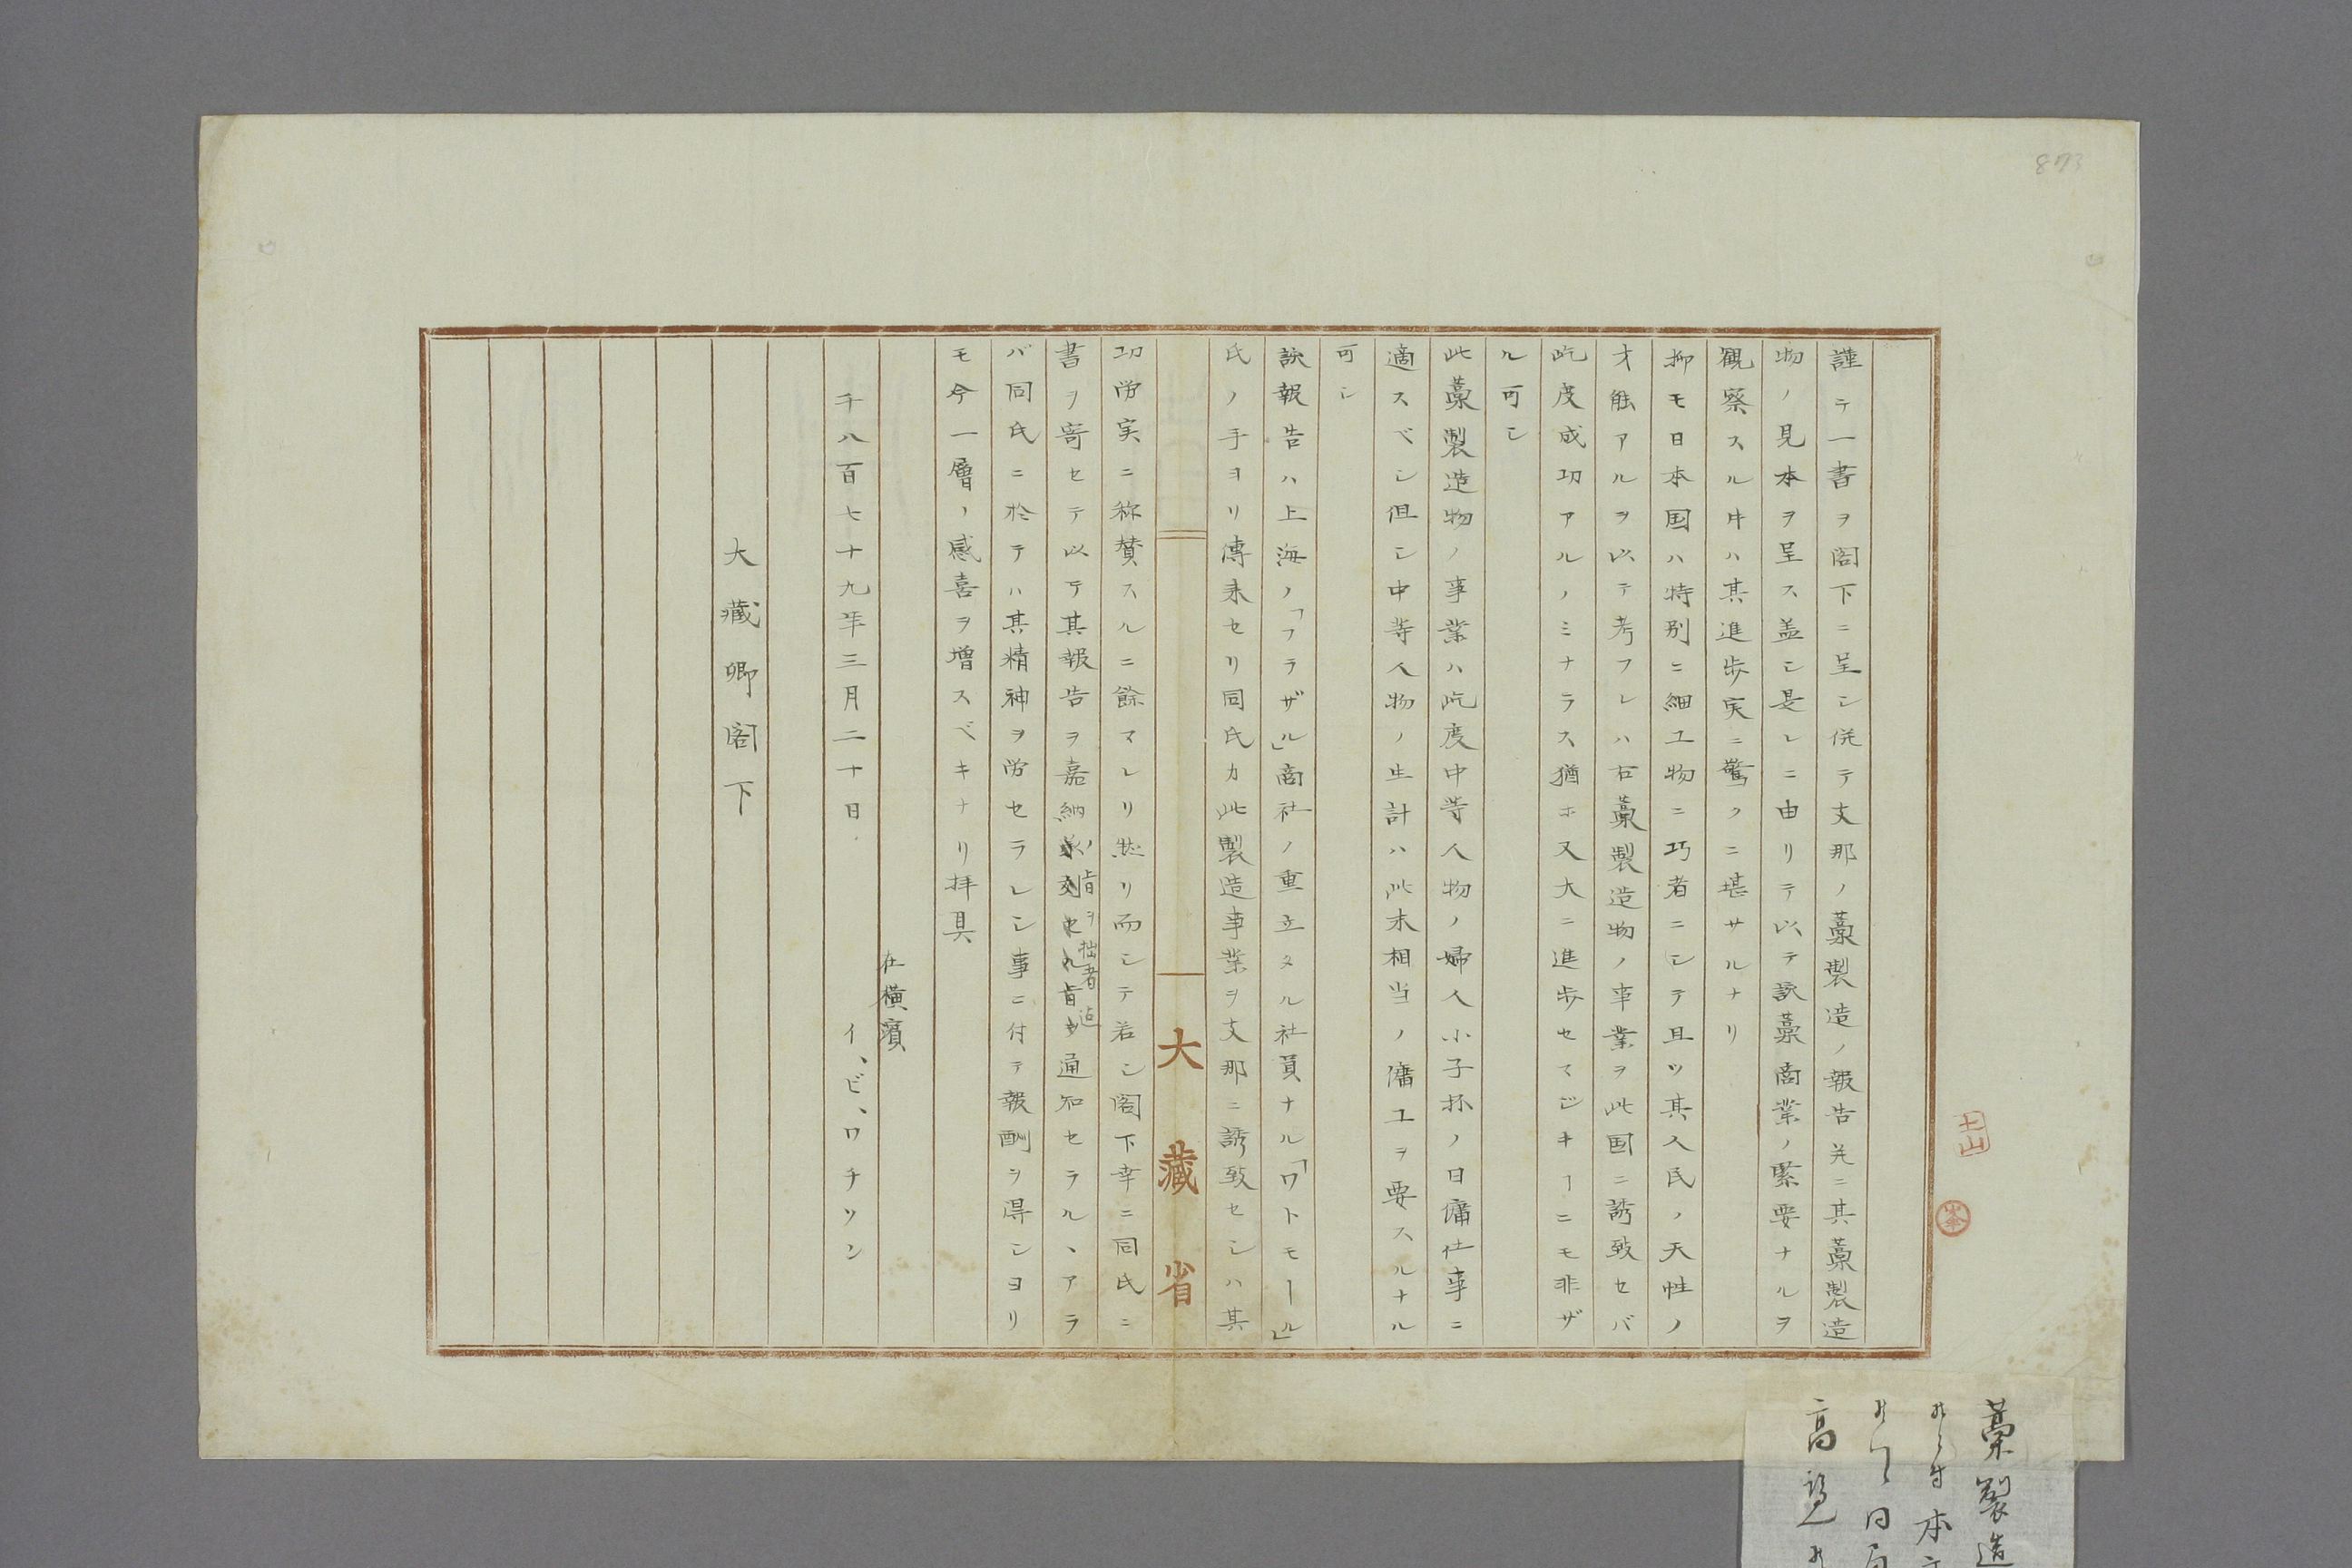 謹テ一書ヲ閣下ニ呈シ併テ支那ノ藁製造ノ報告并ニ其藁製造
物ノ見本ヲ呈ス盖シ是レニ由リテ以テ該藁商業ノ緊要ナルヲ
観察スル井ハ其進歩実ニ驚クニ堪サルナリ
抑モ日本国ハ特別ニ細工物ニ巧者ニシテ且ツ其人民ノ天性ノ
才能アルヲ以テ考フレハ右藁製造物ノ事業ヲ此国ニ誘致セバ
屹度成功アルノミナラス猶ホ又大ニ進歩セマジキヿニモ非ザ
ル可シ
此藁製造物ノ事業ハ屹度中等人物ノ婦人小子抔ノ日傭仕事ニ
適スベシ但シ中等人物ノ生計ハ此末相当ノ傭工ヲ要スルナル
可シ
該報告ハ上海ノ「フラザル」商社ノ重立タル社員ナル「ワトモール」
氏ノ手ヨリ傳来セリ同氏カ此製造事業ヲ支那ニ誘致セシハ其
大藏省
功労実ニ称賛スルニ餘マレリ然リ而シテ若シ閣下幸ニ同氏ニ
書ヲ寄セテ以テ其報告ヲ嘉納ノ旨ヲ拙者迄通知セラルヽアラ
バ同氏ニ於テハ其精神ヲ労セラレシ事ニ付テ報酬ヲ得シヨリ
モ今一層ノ感喜ヲ増スベキナリ拝具
在横濱
イ、ビ、ワチソン
千八百七十九年三月二十日
大藏卿閣下
873
藁製造
本
同
高覧